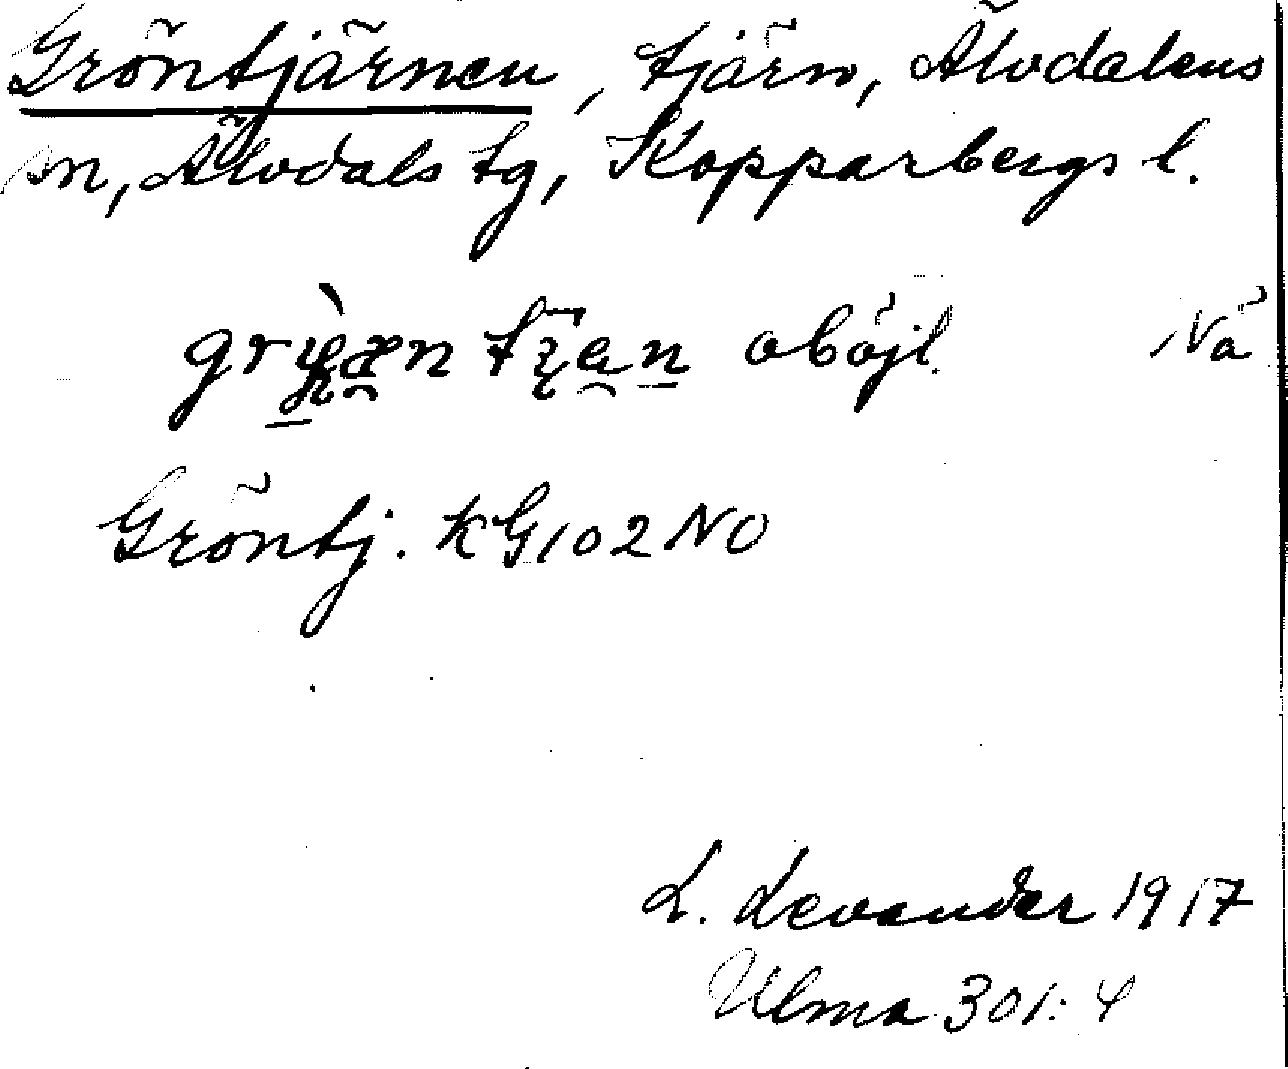 Gröntjärnen, tjärn, Älvdalens
sn, Älvdals tg, Kopparbergs l.
oböjl. Nä
Gröntj. KG102NO
L. Levander 1917
Ulma 301:4